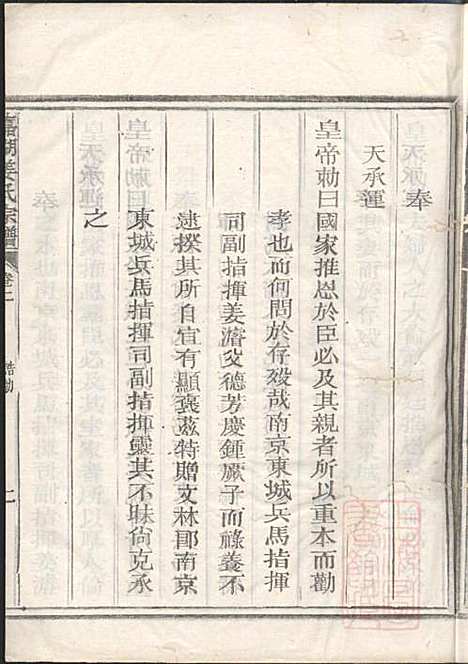 奉
天承運
皇帝勅曰國家推恩於臣必及其親者所以重本而勸
孝也而何間於存歿哉南京東城兵馬指揮
司副指揮姜濬父德芳慶鍾厥子而祿養不
逮揆其所自宜有顯褒茲特贈文林郎南京
東城兵馬指揮司副指揮靈其不昧尚克承
之
姜氏宗譜
卷二
誥勅
二